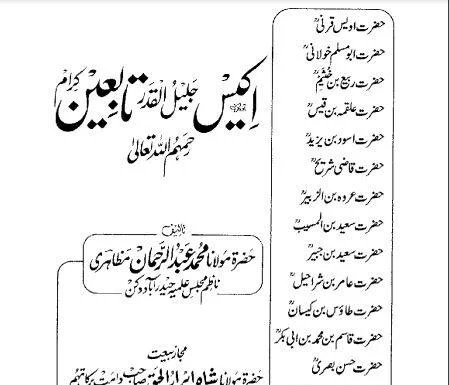 حضرت اویس قرنیؒ
حضرت ابو مسلم خولانیؒ
حضرت ربیع بن خثیمؒ
حضرت علقمہ بن قیسؒ
حضرت اسود بن یزیدؒ
حضرت قاضی شریحؒ
حضرت عروہ بن الزبیرؒ
حضرت سعید بن المسیبؒ
حضرت سعید بن جبیرؒ
حضرت عامر بن شراحیلؒ
حضرت طاؤس بن کیسانؒ
حضرت قاسم بن محمد بن ابی بکرؒ
حضرت حسن بصریؒ
اکیس جلیل القدر تابعین کرام
رحمہم اللہ تعالیٰ
تالیف
حضرۃ مولانا محمد عبد الرحمان مظاہری
ناظم مجلس علمیہ حیدرآباد دکن
مجاز بیعت
حضرۃ مولانا شاہ ابرار الحق صاحب دامت برکاتہم